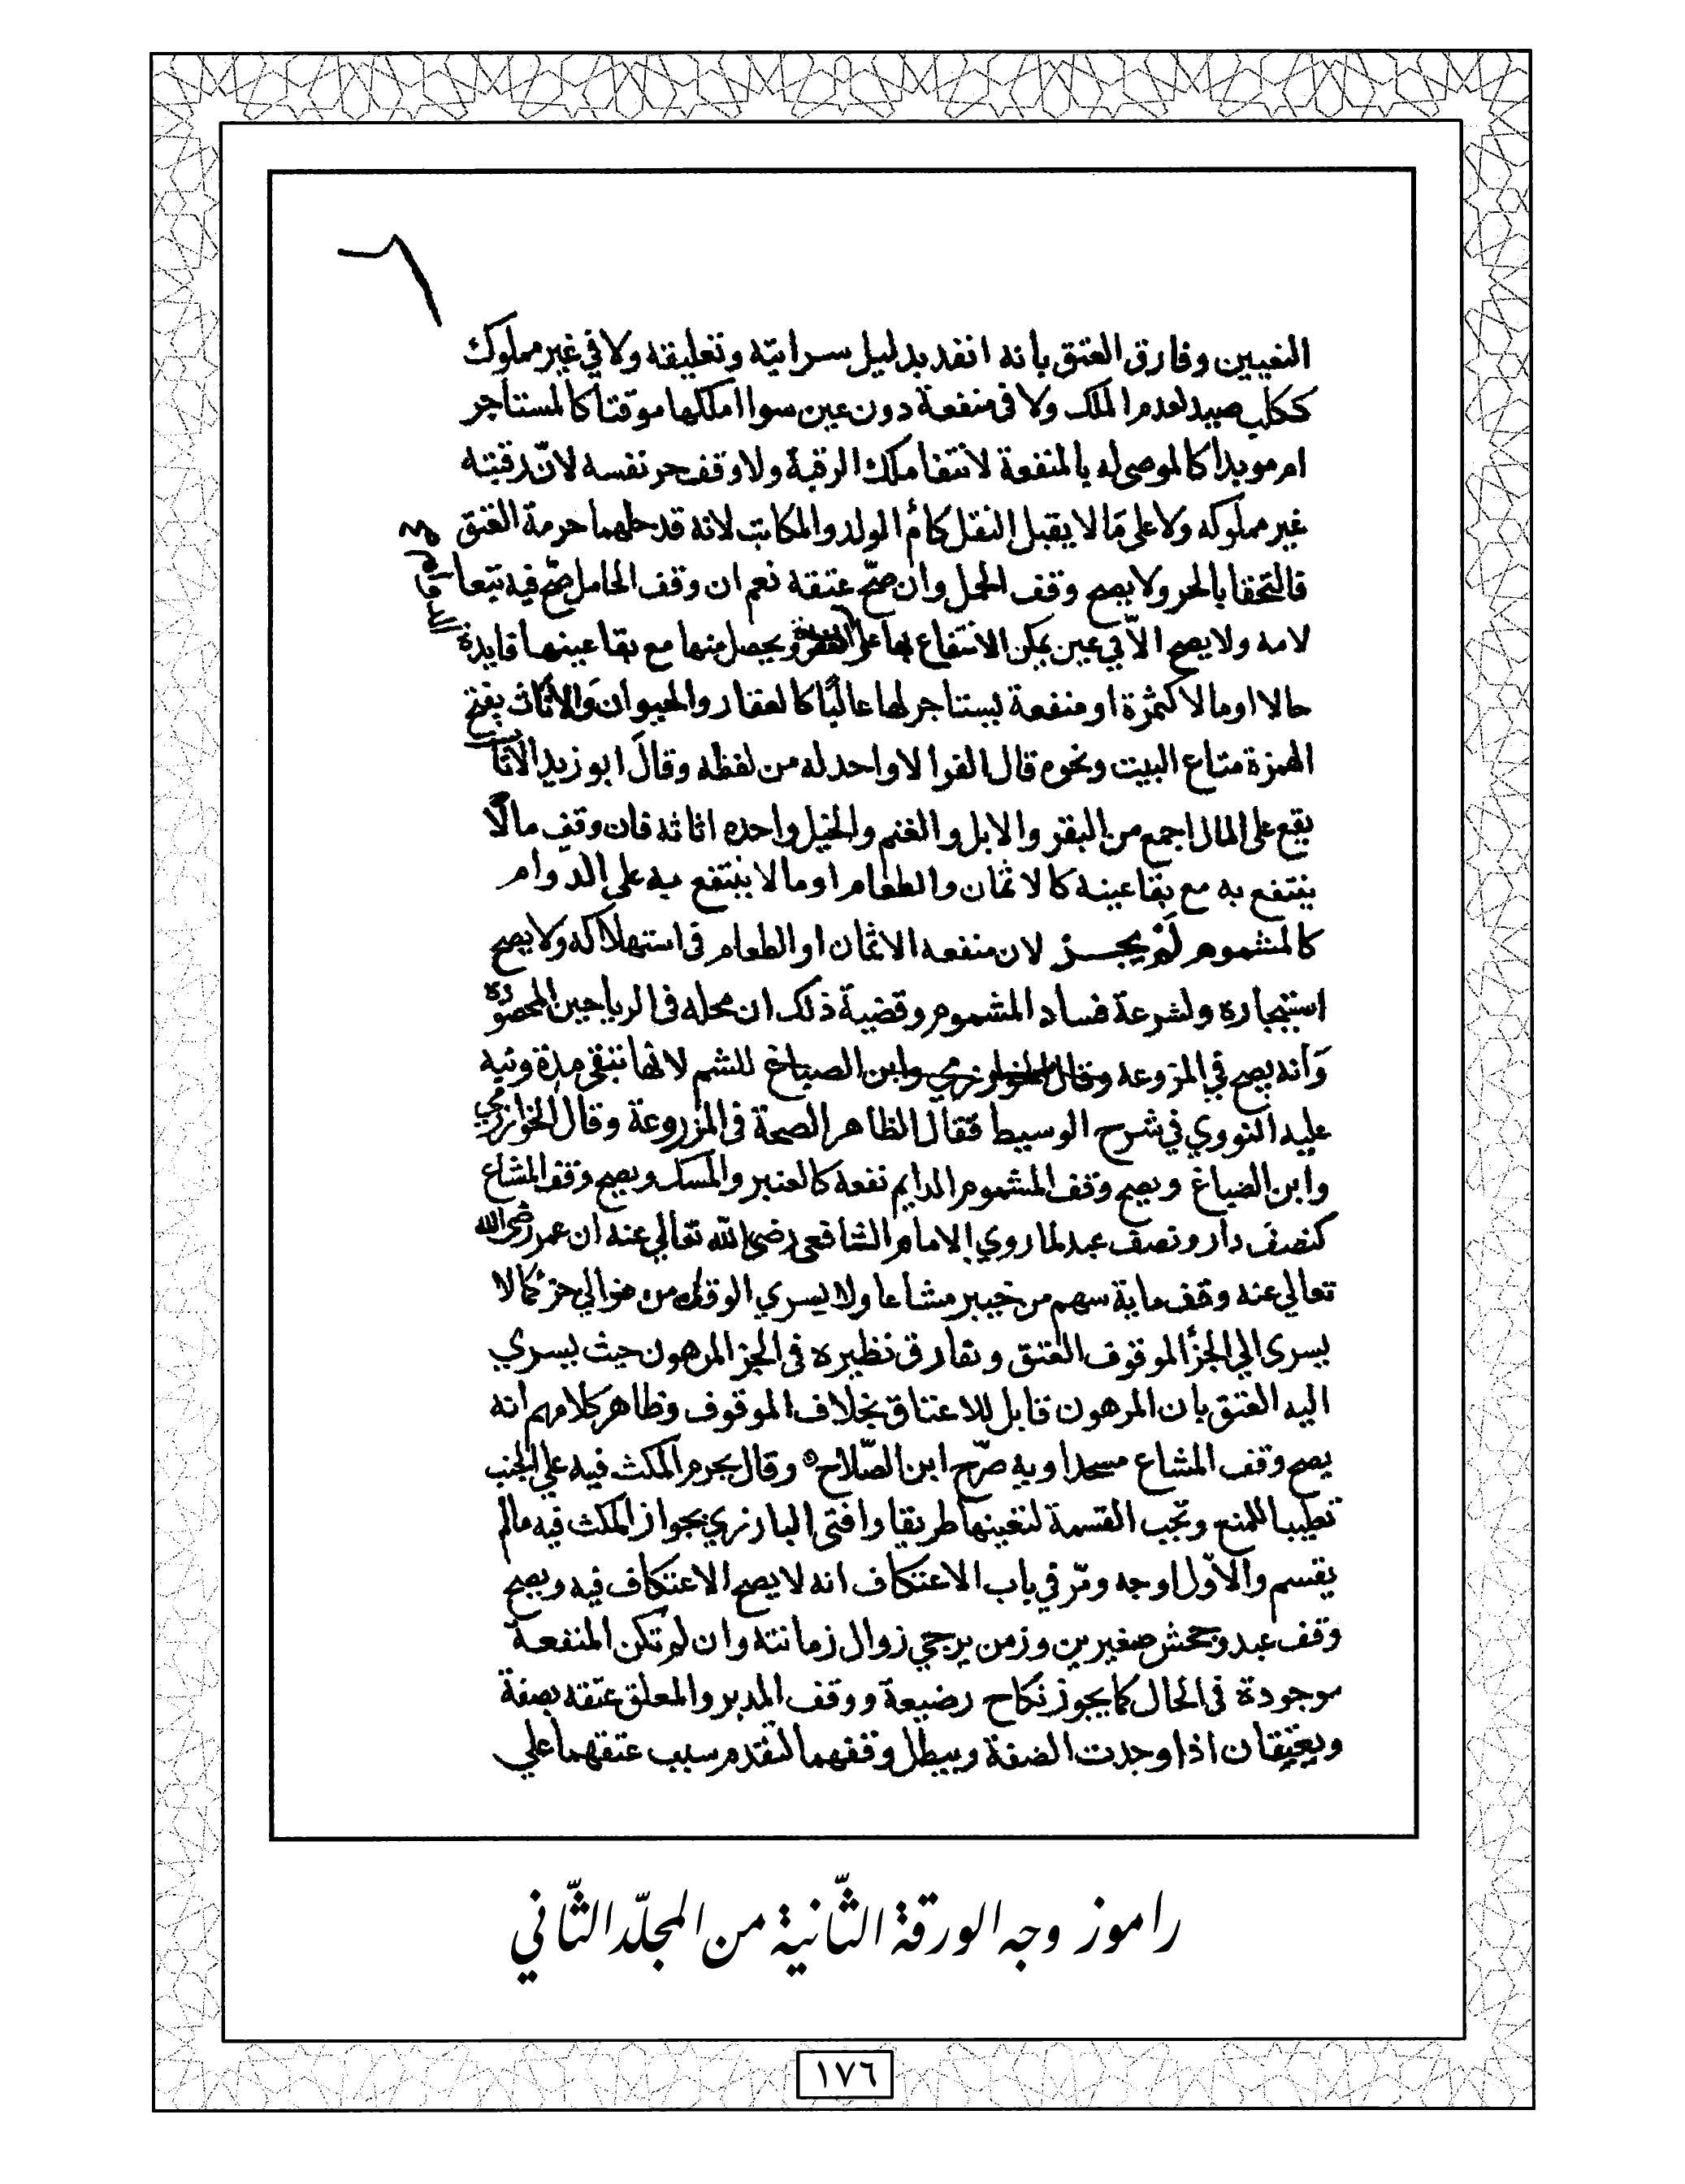 التعيين وفارق العتق بانه انفد بدليل سرايته وتعليقه ولا في غير مملوك
ككلب صيد لعدم الملك ولا في منفعة دون عين سوا املكها موقتا كالمستاجر
ام موبدا كالموصى له بالمنفعة لانتفا ملك الرقبة ولا وقف حر نفسه لانّ رقبته
غير مملوكه ولا على مَا لا يقبل النقل كاُم الولد والمكاتب لانه قد حلهما حرمة العتق
فالتحقا بالحر ولا يصح وقف الحمل وان صحّ عتقه نعم ان وقف الحامل صحّ فيه تبعا
لامه ولا يصح الاّ في عين يمكن الانتفاع بها على ويحصل منها مع بقا عينها فايدة
الدوام
حالا او مالا كثمرة او منفعة يستاجر لها غالبًا كالعقار والحيوان وَالاَثَاث بفتح
الهمزة متاع البيت ونحوه قال الفرا لا واحد له من لفظه وقالَ ابو زيد الاثاث
يقع على المال اجمع من البقر والابل والغنم والخيل واحده اثاثه فان وقف مالا
ينتفع به مع بقا عينه كالاثمان والطعام او مالا ينتفع به على الدوام
كالمشموم لَمْ يجــز لان منفعه الاثمان او الطعام في استهلاكه ولا يصح
استيجاره ولسرعة فساد المشموم وقضية ذلك ان محله في الرياحين المحصوده
وَانه يصح في المزروعه وقال الخوارزمي وابن الصباغ للشم لانها تبقى مدة ونبه
عليه النووي في شرح الوسيط فقال الظاهر الصحة في المزروعة وقال الخوارزمي
وابن الصباغ ويصح وقف المشموم الدايم نفعه كالعنبر والمسك ويصح وقف المشاع
كنصف دار ونصف عبد لما روي الامام الشافعي رضى الله تعالي عنه ان عمر رضى الله
تعالي عنه وقف ماية سهم من خيبر مشاعا ولا يسري الوقف من جزء كما لا
يسرى الي الجزأ الموقوف العتق وتفارق نظيره في الجز المرهون حيث يسري
اليه العتق بان المرهون قابل للاعتاق بخلاف الموقوف وظاهر كلامهم انه
يصح وقف المشاع مسجدا وبه صرّح ابن الصّلاح وقال يحرم المكث فيه علي الجنب
تغليبا للمنع وتجب القسمة لتعينها طريقا وافتى البارزي بجواز المكث فيه مالم
يقسم والاوّل اوجه ومرّ في باب الاعتكاف انه لا يصح الاعتكاف فيه ويصح
وقف عبد وجحش صغيرين وزمن يرجي زوال زمانته وان لم تكن المنفعـة
موجودة في الحال كما يجوز نكاح رضيعة ووقف المدبر والمعلق عتقه بصفة
ويعتقان اذا وجدت الصفة ويبطل وقفهما لتقدم سبب عتقهما علي
راموز وجه الورقة الثّانية من المجلّد الثّاني
١٧٦